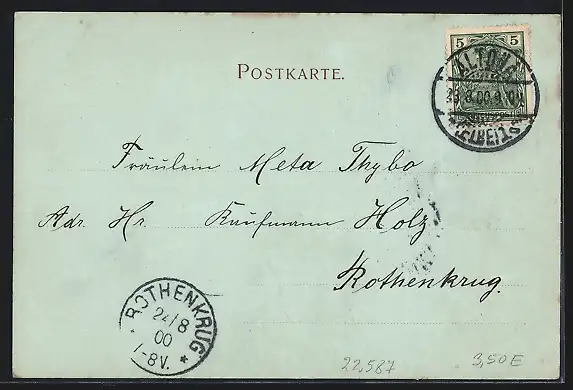 POSTKARTE.
5 5
ALTONA
23.8.00.9
(ELBE) 1
Fräulein Meta Thybo
Adr. Hr. Kaufmann Holz
Rothenkrug.
ROTHENKRUG
24/8
00
7-8V.
22,587
3,50 E